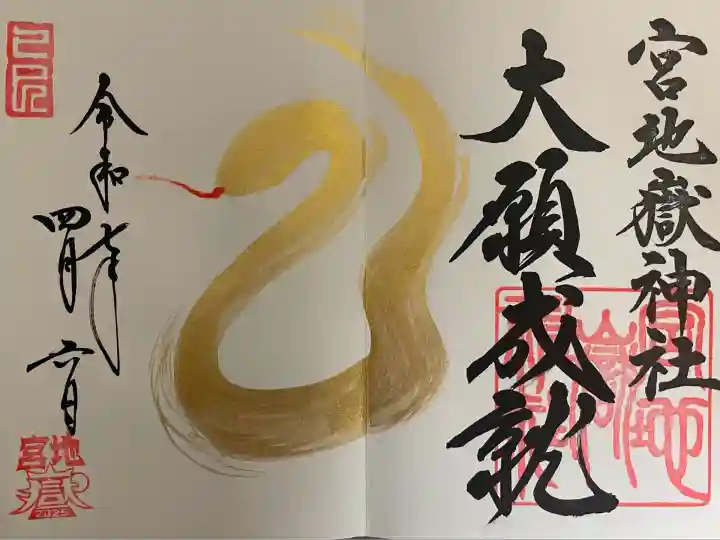 宮地嶽神社
大願成就
令和七年
四月六日
宮地嶽
2025